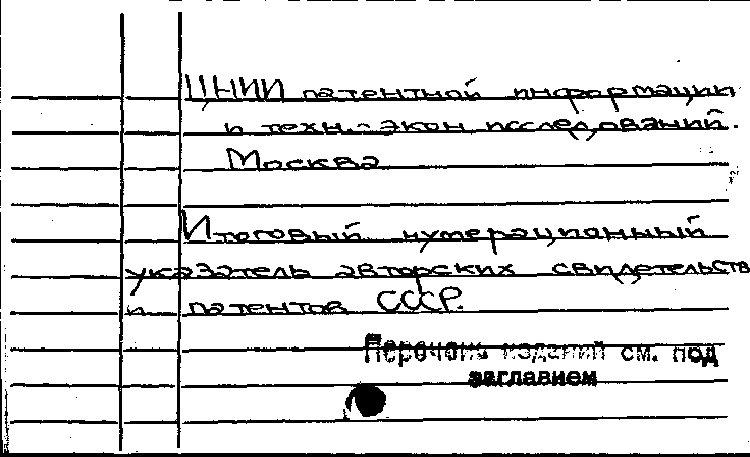 ЦНИИ патентной информации
и техн.-экон исследований.
Москва
Итоговый нумерационный
указатель авторских свидетельств
и патентов СССР.
Перечень изданий см. под
заглавием